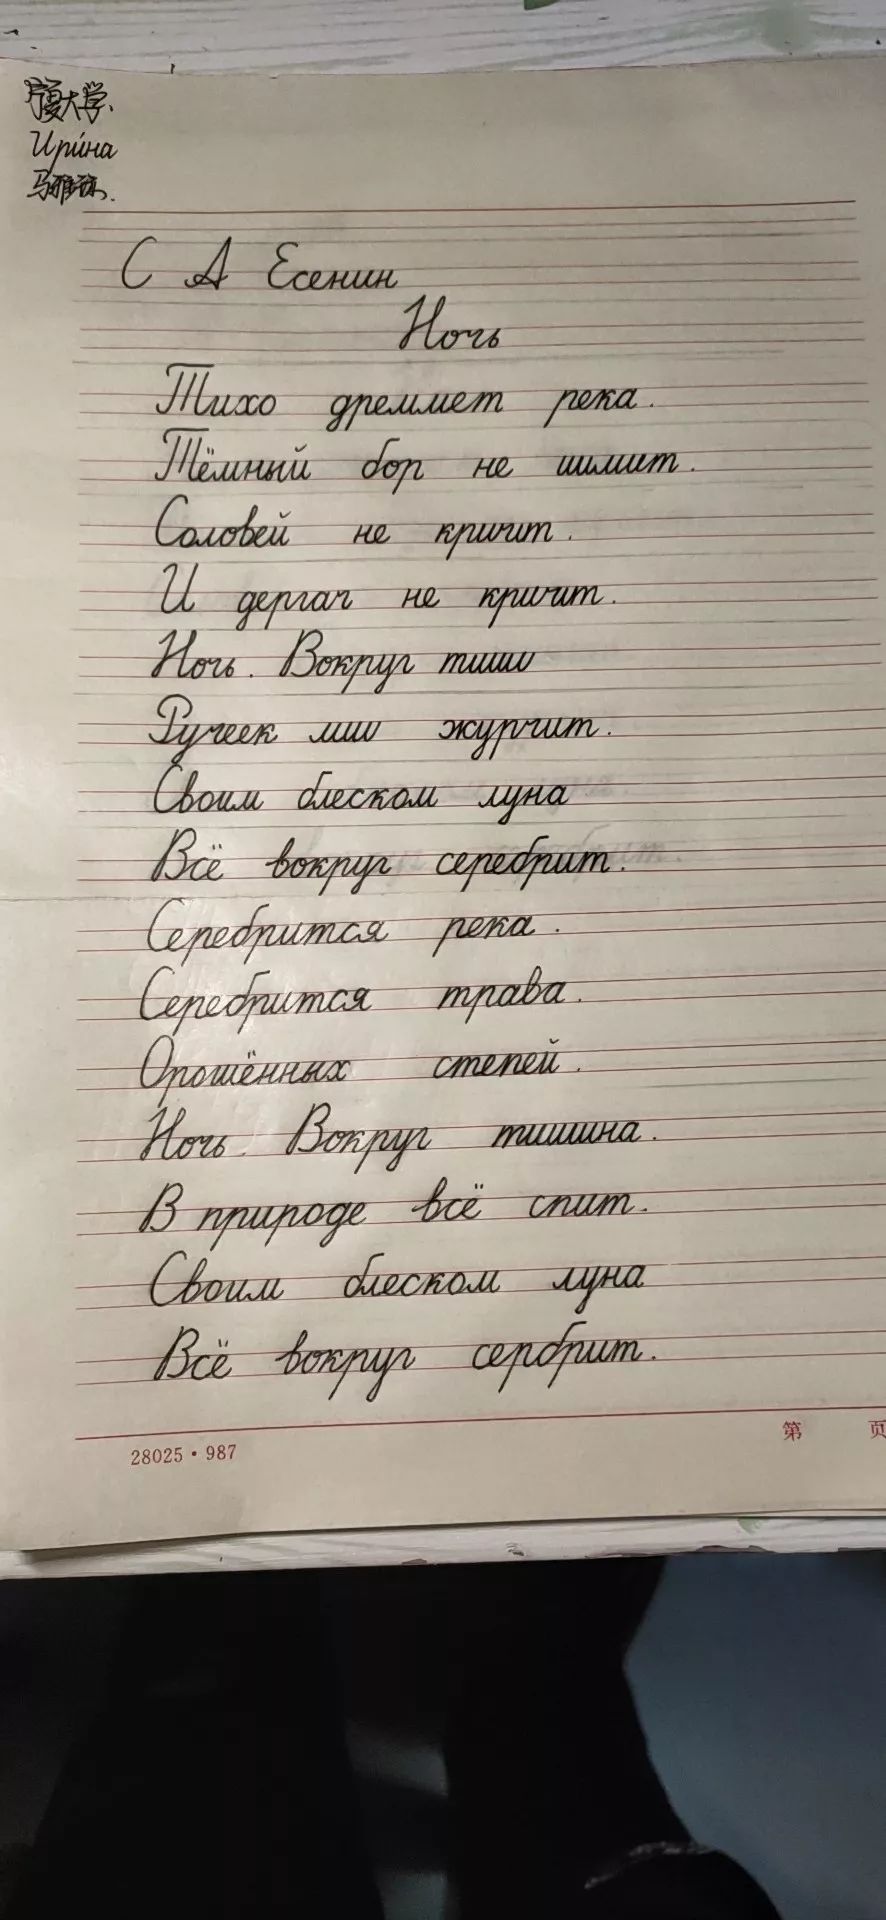 宁夏大学.
Ири́на
С А Есенин
Ночь
Тихо дремлет река.
Тёмный бор не шимит.
Соловей не кричит.
И дергач не кричит.
Ночь. Вокруг тиши
Ручеек миш журчит.
Своим блеском луна
Всё вокруг серебрит.
Серебрится река.
Серебрится трава.
Орошённых степей.
Ночь. Вокруг тишина.
В природе всё спит.
Своим блеском луна
Всё вокруг сербрит.
28025·987
第 页